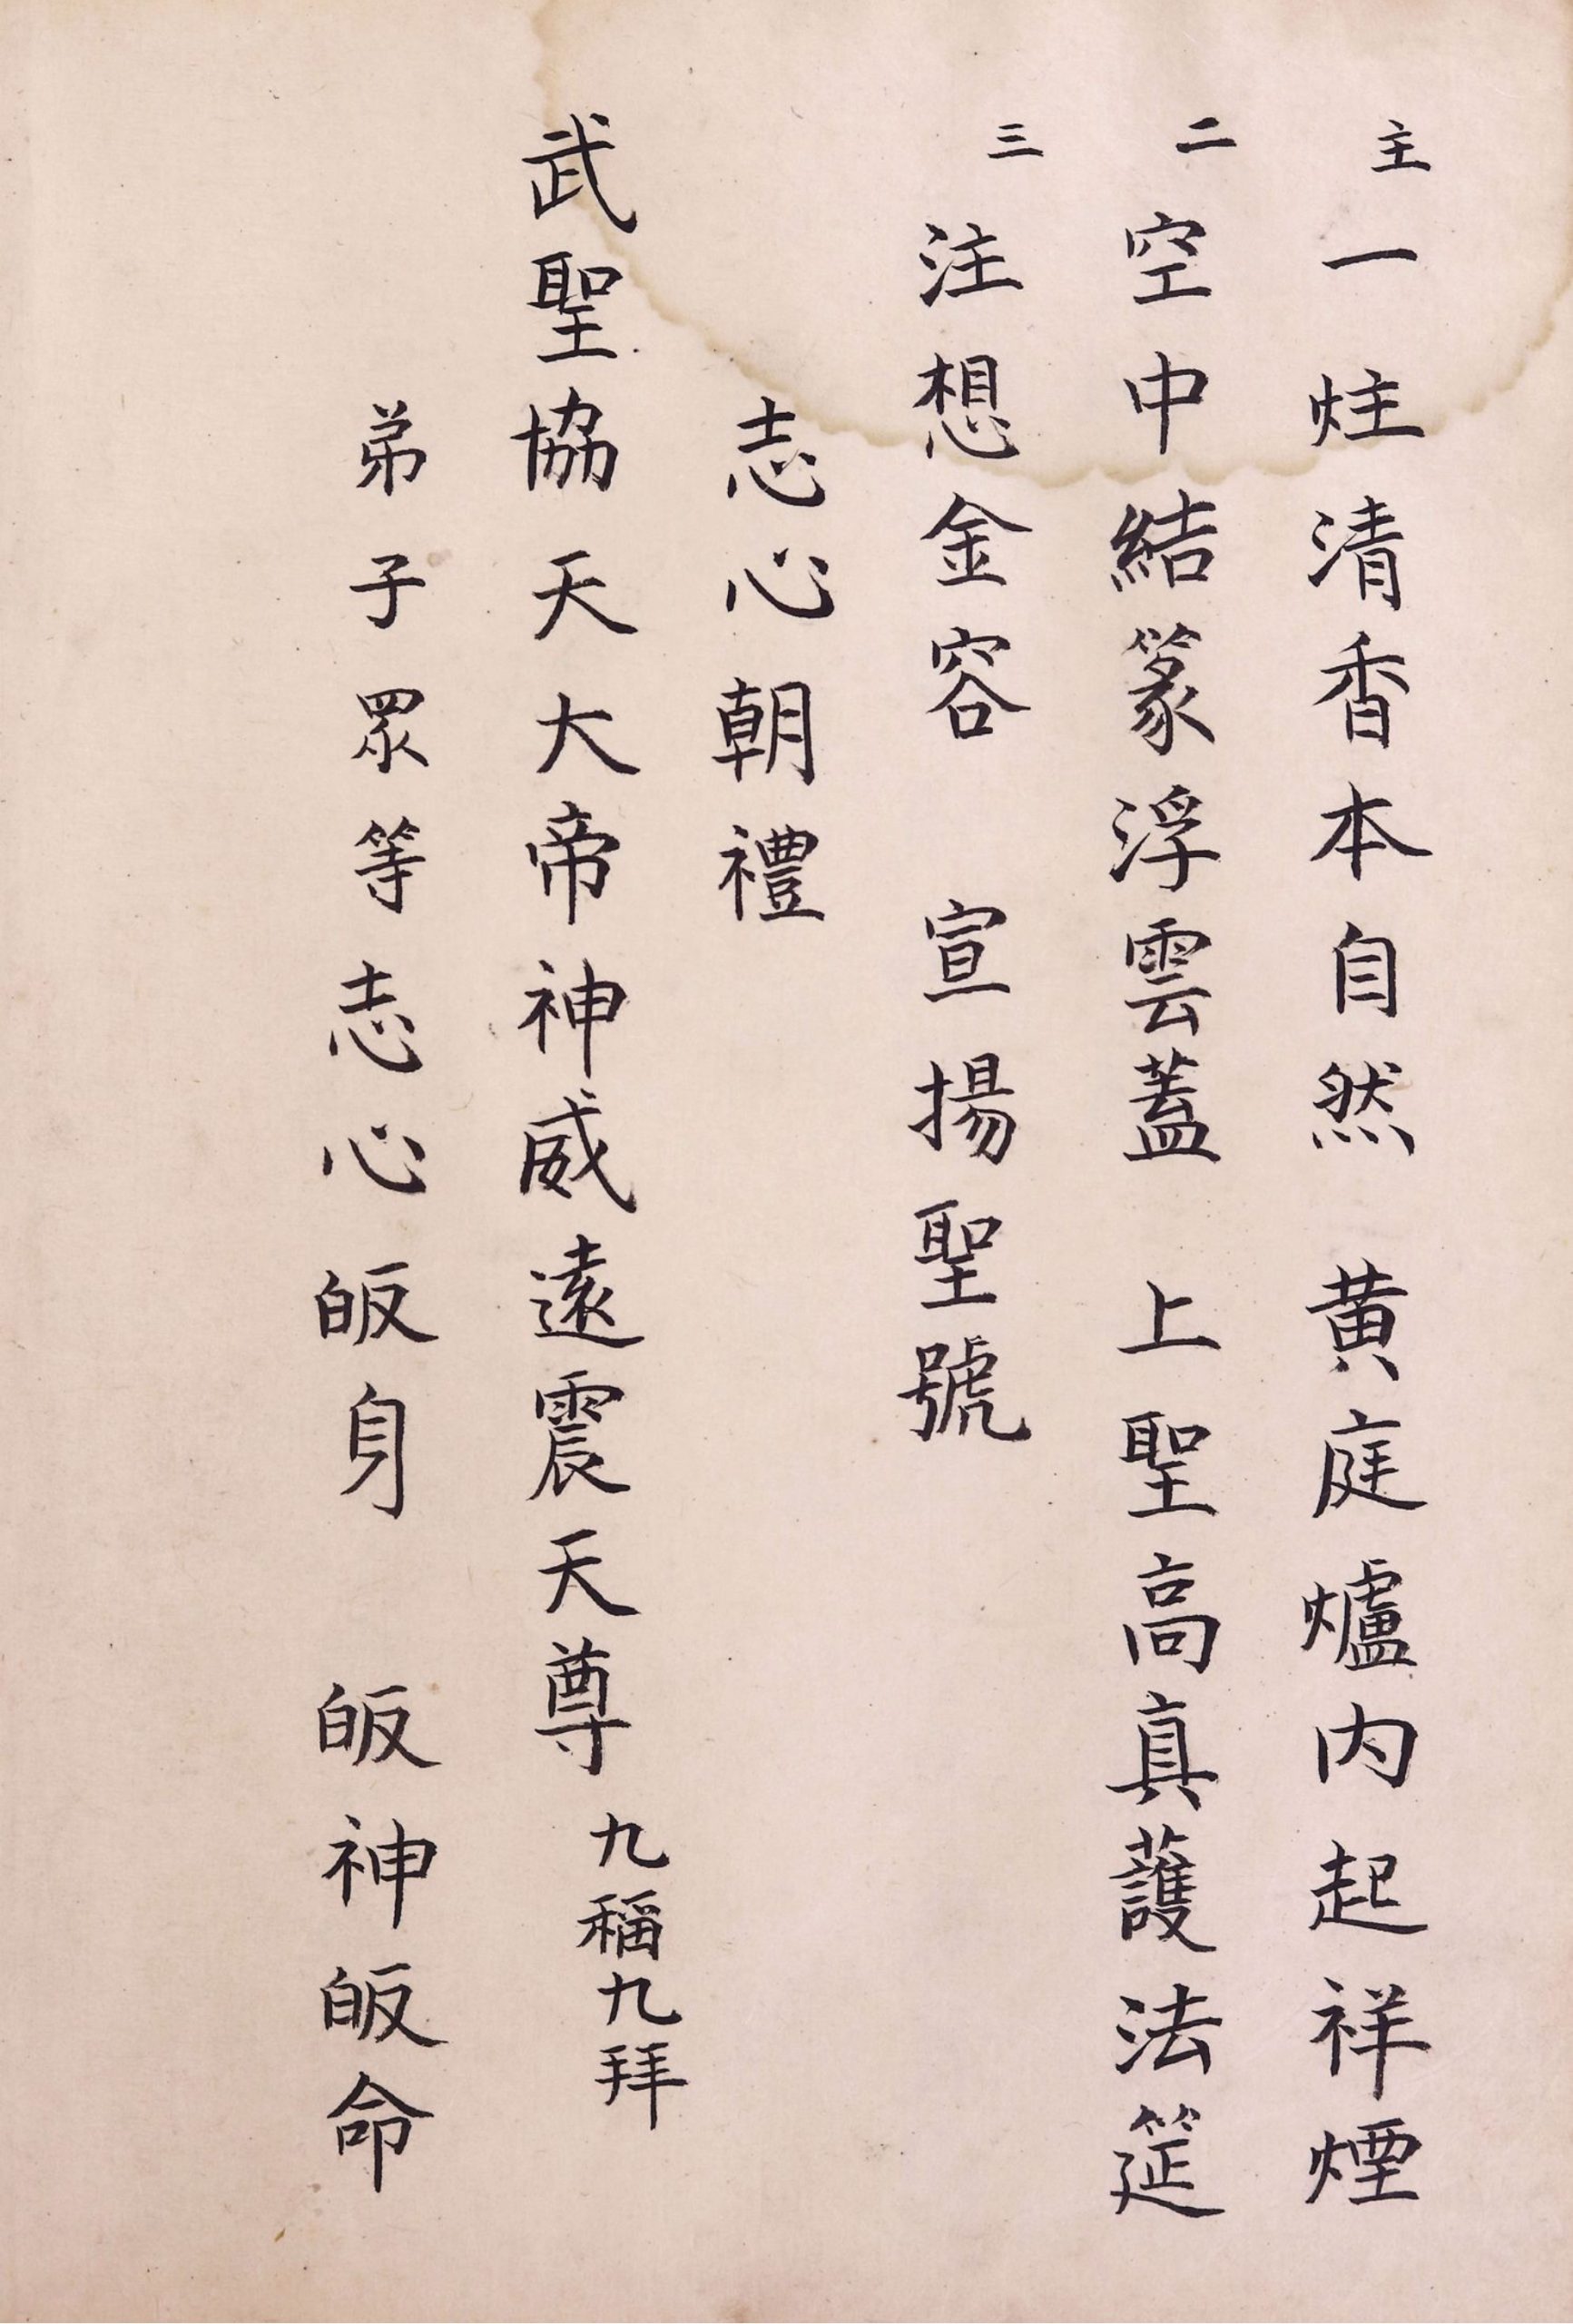 主 一炷清香本自然 黃庭爐內起祥煙
二 空中結篆浮雲蓋 上聖高真護法筵
三 注想金容 宣揚聖號
志心朝禮
武聖協天大帝神威遠震天尊 九稱九拜
弟子眾等志心皈身 皈神皈命